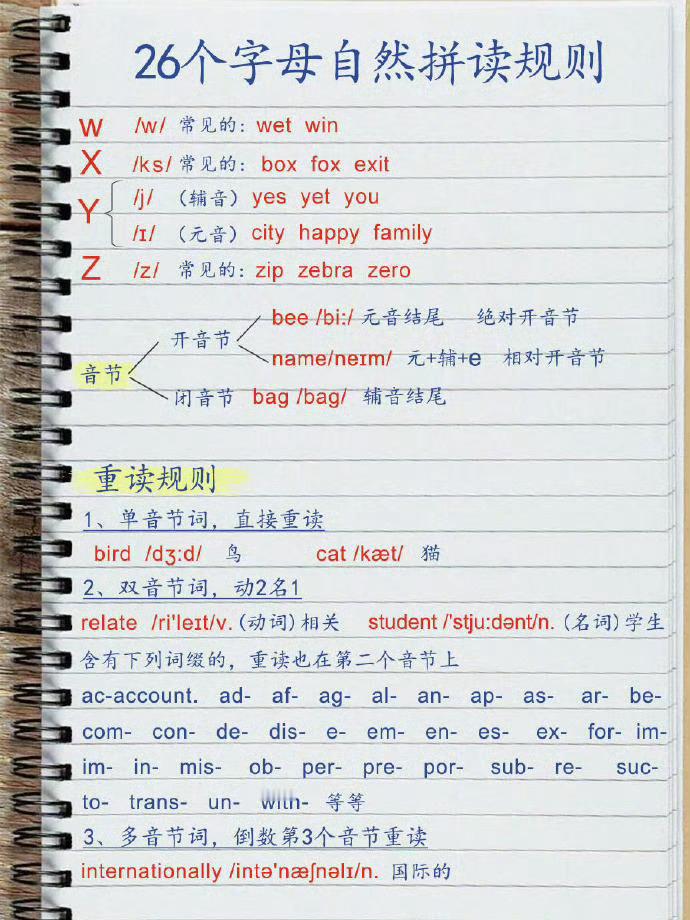 26个字母自然拼读规则
W /w/ 常见的: wet win
X /ks/ 常见的: box fox exit
Y /j/ (辅音) yes yet you
/ɪ/ (元音) city happy family
Z /z/ 常见的: zip zebra zero
音节
开音节
bee /biː/ 元音结尾 绝对开音节
name/neɪm/ 元+辅+e 相对开音节
闭音节 bag /bag/ 辅音结尾
重读规则
1、单音节词，直接重读
bird /dʒ:d/ 鸟 cat /kæt/ 猫
2、双音节词，动2名1
relate /ri'leɪt/v.(动词)相关 student /'stju:dənt/n. (名词)学生
含有下列词缀的，重读也在第二个音节上
ac-account. ad- af- ag- al- an- ap- as- ar- be-
com- con- de- dis- e- em- en- es- ex- for- im-
im- in- mis- ob- per- pre- por- sub- re- suc-
to- trans- un- with- 等等
3、多音节词，倒数第3个音节重读
internationally /intə'næʃnəlɪ/n. 国际的